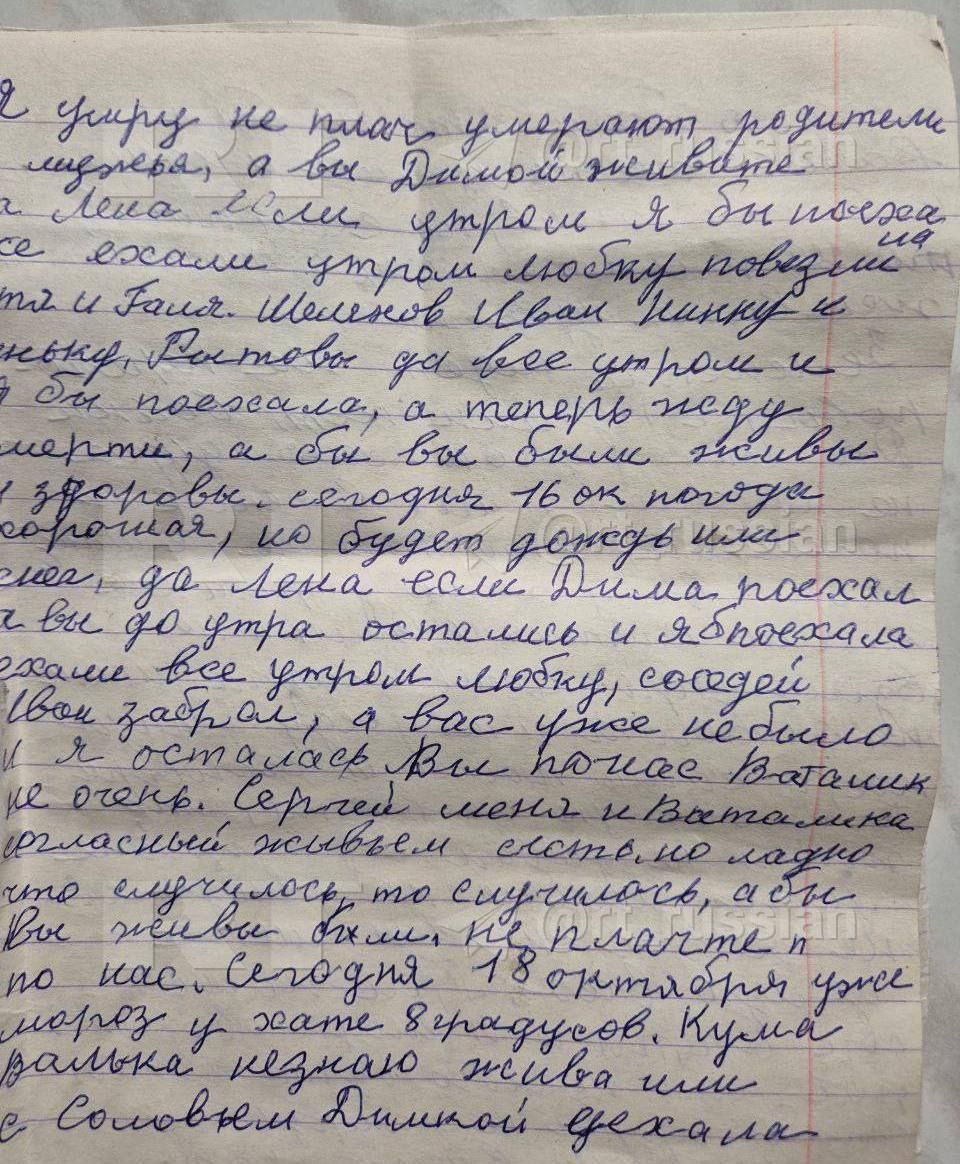 я умру не плач умерают родители
мужья, а вы Димой живите
а Лена если утром я бы поеха
ла
се ехали утром любку повезли
тя и Галя. Шеленов Иван Нинку и
ньку, да все утром и
я бы поехала, а теперь жду
мерти, а бы вы были живы
и здоровы. сегодня 16 ок погода
хорошая, но будет дождь или
снег, да Лена если Дима поехал
а вы до утра остались и я б поехала
ехали все утром любку, соседей
Иван забрал, а вас уже небыло
и я осталась Вы понас Ваталик
не очень. Сергей меня и Ваталика
согласный живьем сесть, но ладно
что случилось, то случилось, абы
Вы живы были. не плачте п
по нас. Сегодня 18 октября уже
мороз у хате 8 градусов. Кума
валька незнаю жива или
с Соловьем Димкой уехала
@rt_russian
@rt_russian
@rt_russian